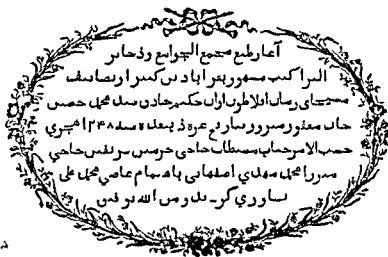 آغاز طبع مجمع الجوامع و ذخائر
التراکیب مشهور بقرابادین کبیر از تصانیف
مسیحای زمان افلاطون اوان حکیم حاذق سید محمد حسین
خان مغفور مبرور بتاریخ غره ذیقعده سنه ۱۲۴۸ هجری
حسب الامر جناب مستطاب حاجی حرمین شریفین حاجی
میرزا محمد مهدی اصفهانی باهتمام حاجی محمد علی
ساوری گردید و من الله توفیق